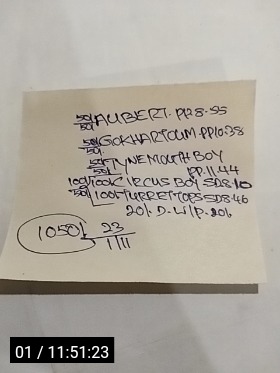 50/50 AUBERT. PP.8.55
50/50 GOKHARTOUM PP10.38
50/50 TYNEMOUTH BOY
PP.11.44
100/100 CIRCUS BOY SD8.10
50/100 TURRETTOPS SD8.46
20/. D. Lil P.
1050 23
1/11
01 / 11:51:23